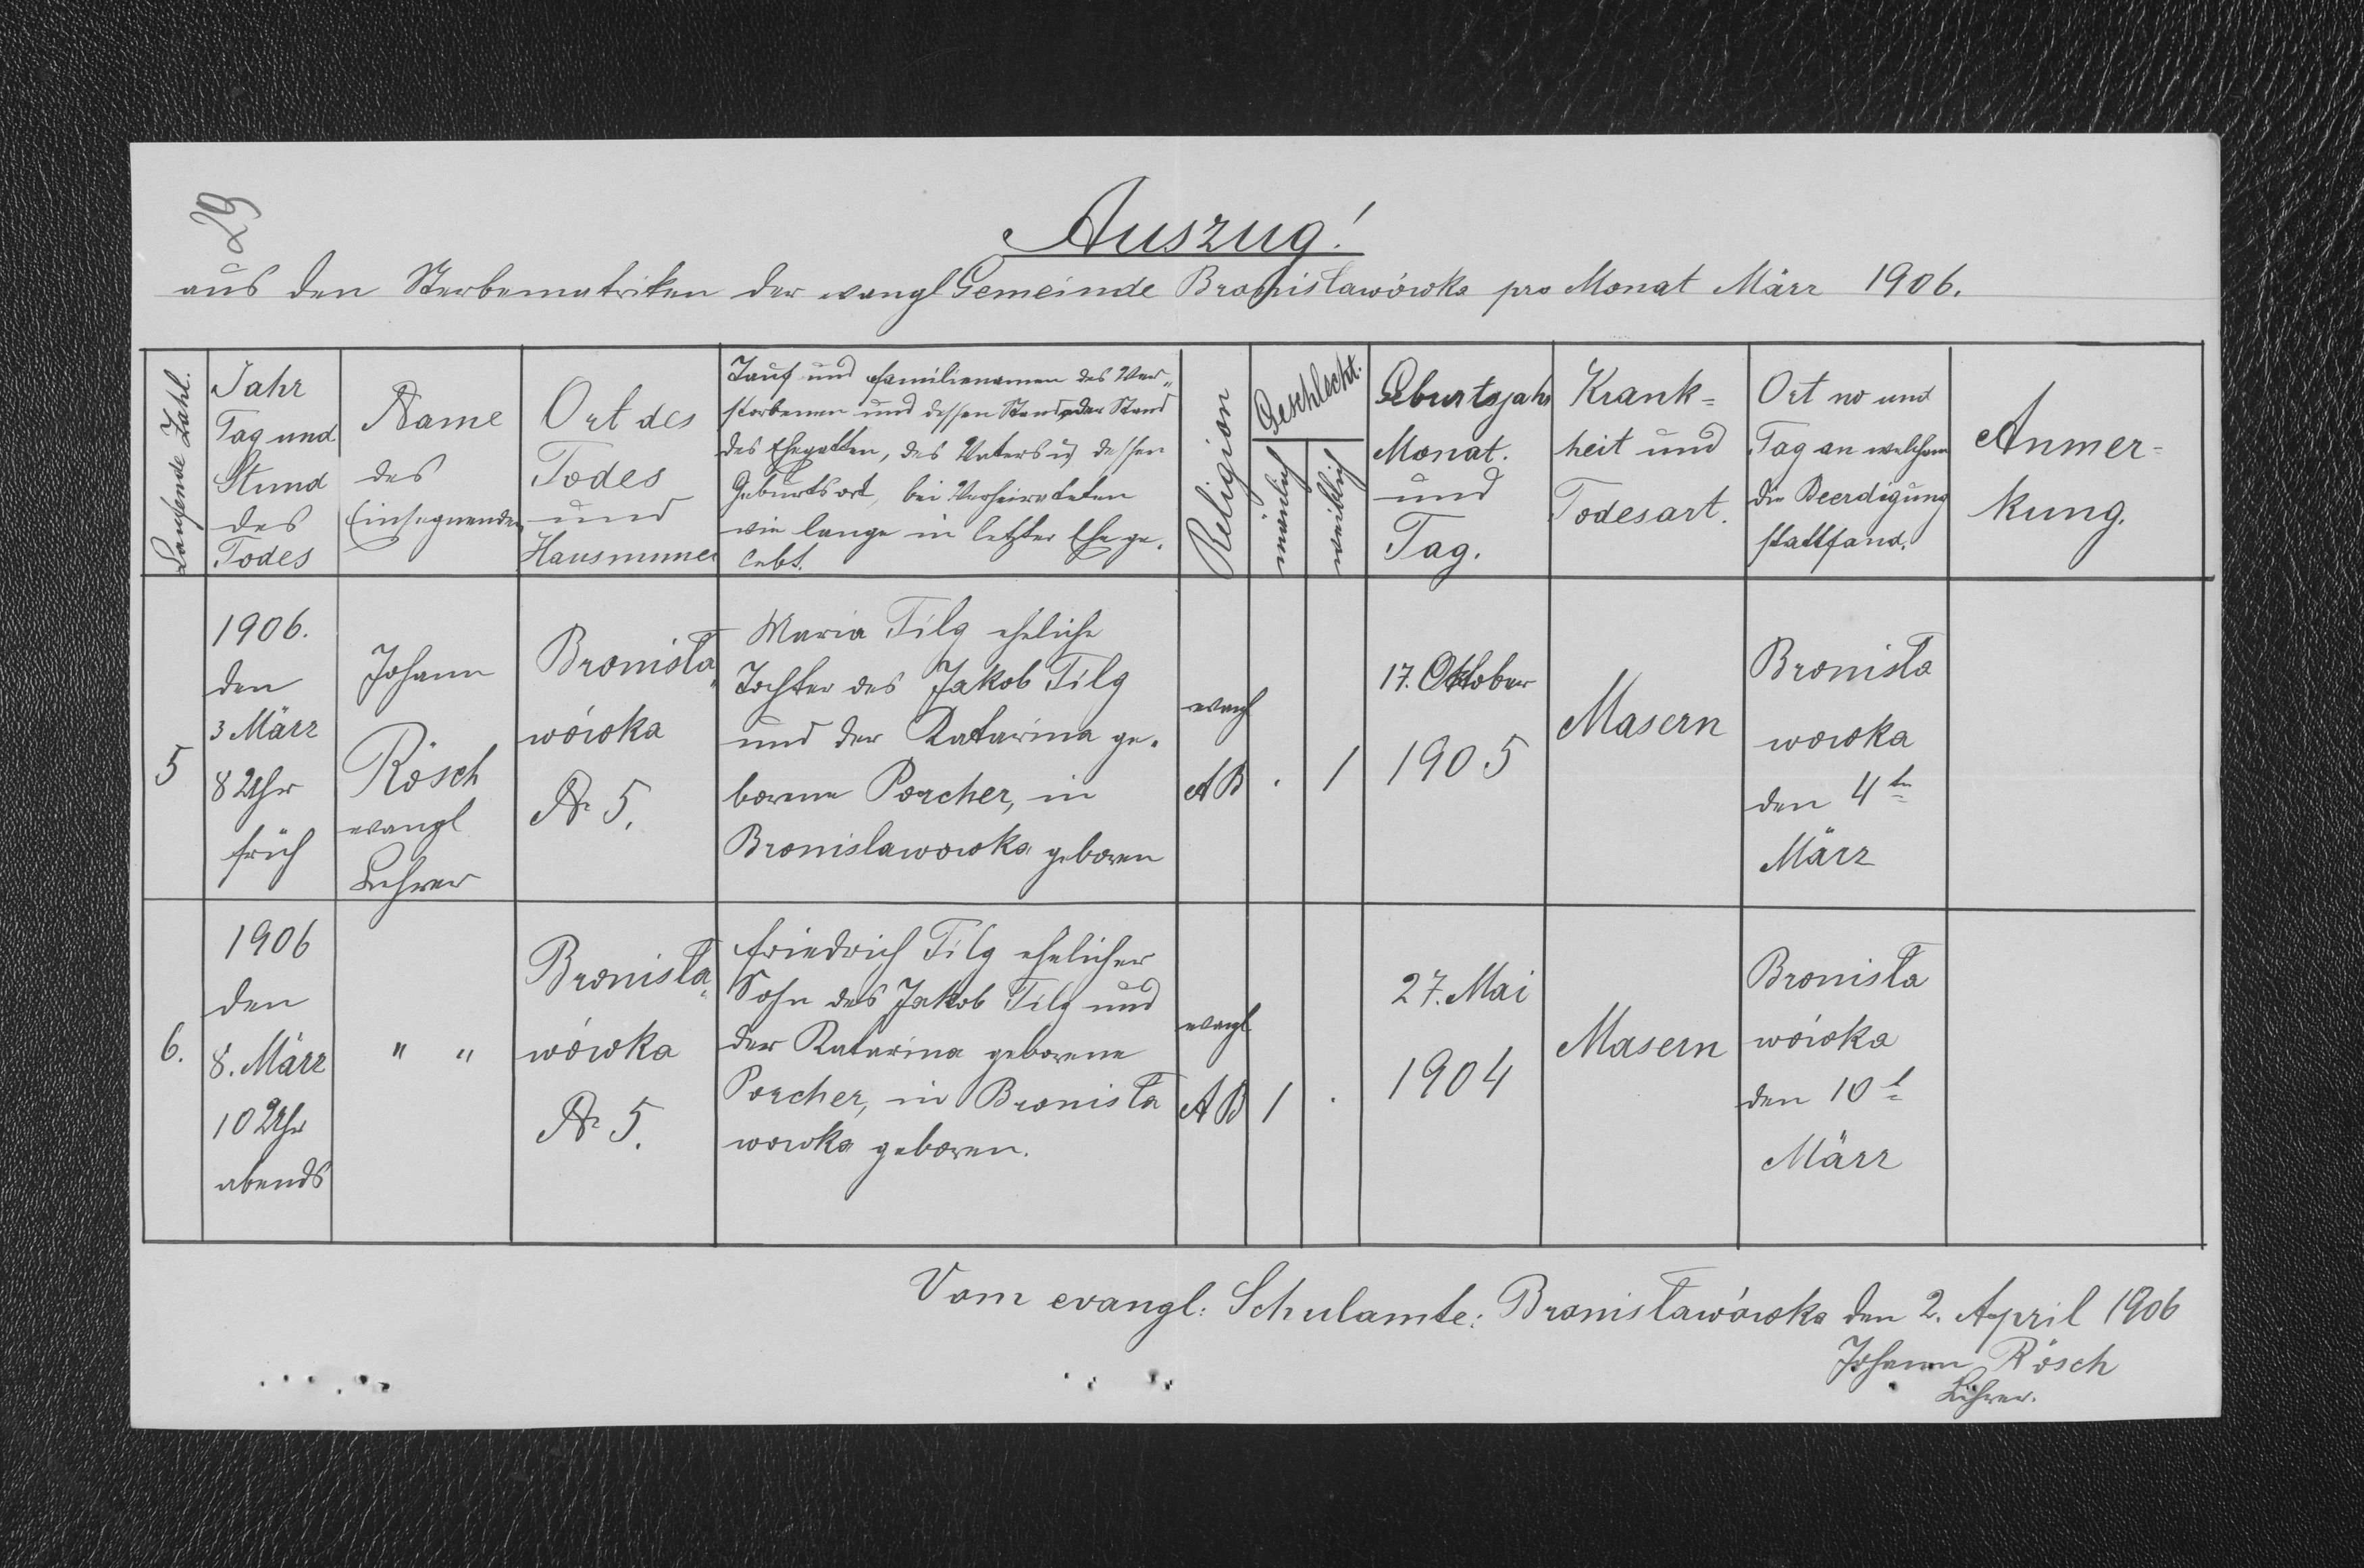 29
Auszug!
aus den Sterbematriken der evangl Gemeinde Bronisławówka pro Monat März 1906.
Laufende Zahl.
Jahr
Tag und
Stund
des
Todes
Name
des
Einsegnenden
Ort des
Todes
und
Hausnumer
Tauf und Familienamen des Ver„
storbenen und dessen Stand, der Stand
des Ehegatten, des Vaters u dessen
Geburtsort, bei Verheirateten
wie lange in letzter Ehe ge„
lebt.
Religion
Geschlecht.
mänlich
weiblich
Geburtsjahr
Monat.
und
Tag.
Krank=
heit und
Todesart.
Ort wo und
Tag an welchem
die Beerdigung
stattfand.
Anmer=
kung.
5
1906.
den
3 März
8 Uhr
früh
Johann
Rösch
evangl
Lehrer
Bronisła„
wówka
Nr 5.
Maria Filg eheliche
Tochter des Jakob Filg
und der Katarina ge„
borene Porcher, in
Bronislawowka geboren
evangl
AB
.
1
17. Oktober
1905
Masern
Bronisła
wowka
den 4ten
März
6.
1906
den
8. März
10 Uhr
abends
" "
Bronisła„
wówka
Nr 5.
Friedrich Filg ehelicher
Sohn des Jakob Filg und
der Katarina geborene
Porcher, in Bronisła
wowka geboren.
evangl
AB
1
.
27. Mai
1904
Masern
Bronisła
wówka
den 10t
März
Vom evangl: Schulamte: Bronisławówka den 2. April 1906
Johann Rösch
Lehrer.